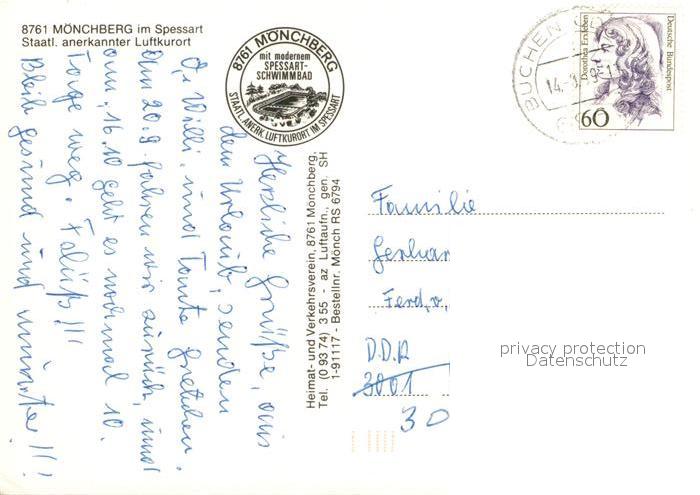 8761 MÖNCHBERG im Spessart
Staatl. anerkannter Luftkurort
8761 MÖNCHBERG
mit modernem
SPESSART-
SCHWIMMBAD
STAATL. ANERK. LUFTKURORT IM SPESSART
Herzliche Grüße, aus
dem Urlaub, senden
O. Willi, und Tante Gretchen.
Am 20.9. fahren wir zurück, und
am, 16.10 geht es nochmal 10.
Tage weg.
Bleib gesund und munter!!!
Heimat- und Verkehrsverein, 8761 Mönchberg,
Tel. (0 93 74) 3 55 - az Luftaufn., gen. SH
1-91117 - Bestellnr. Mönch RS 6794
BUCHEN
14.
Dorothea Erxleben
Deutsche Bundespost
60
Familie
Gerhar
Ferd. v.
D.D.R
3001
30
privacy protection
Datenschutz